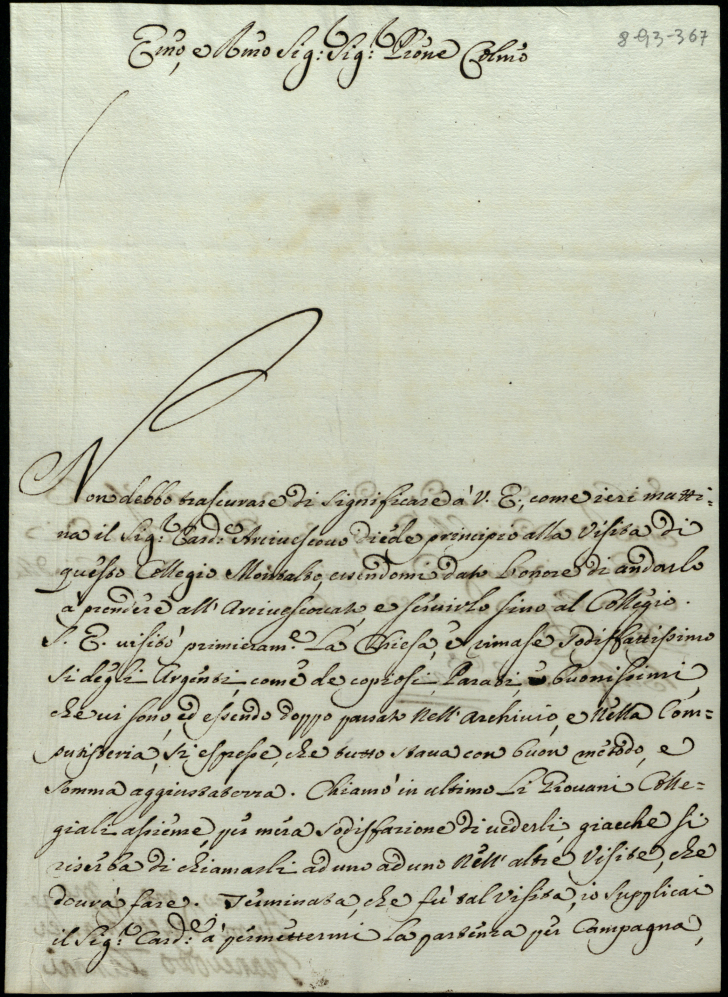 8-93-367
Emo, e Rmo Sig:r Sig:r Prōne Colmo
Non debbo trascurare di significare à V. E., come ieri matti=
na il Sig:r Card:e Arcivescovo diede principio alla Visita di
questo Collegio Montalto, avendomi dato l'onore di andarlo
à prendere all'Arcivescovato e servirlo sino al Collegio.
S. E. visitò primieram:e La Chiesa, e rimase sodisfattissimo
si degli Argenti, come de copiosi Parati e buonissimi,
che vi sono, ed essendo doppo passato nell'Archivio, e nella Com=
putisteria, si espresse, che tutto stava con buon metodo, e
somma aggiustatezza. Chiamò in ultimo Li Giovani Colle=
giali assieme, per mera sodisfazione di vederli, giacche si
riserba di chiamarli ad uno ad uno nell'altre Visite, che
dovrà fare. Terminata, che fù tal Visita, io supplicai
il Sig:r Card:e à permettermi La partenza per Campagna,